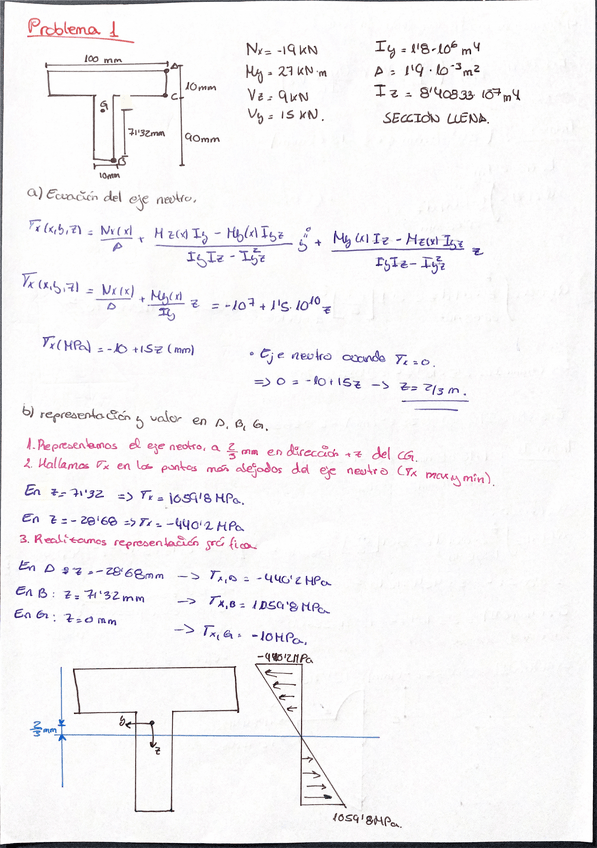 Problema 1
100 mm
A
10mm
C
G
71'32mm
90mm
B
10mm
Nx = -19 kN
My = 27 kN·m
Vz = 9 kN
Vy = 15 kN.
Iy = 1'8·10⁶ m4
A = 1'9·10⁻³ m²
Iz = 8'40833·10⁷ m4
SECCIÓN LLENA.
a) Ecuación del eje neutro.
σx(x,y,z) = Nx(x)/A + (Mz(x) Iy - My(x) Iyz)/(IyIz - Iyz²) y⁰ + (My(x) Iz - Mz(x) Iyz)/(IyIz - Iyz²) z
σx(x,y,z) = Nx(x)/A + My(x)/Iy z = -10⁷ + 1'5·10¹⁰ z
σx(MPa) = -10 + 15z (mm)
• Eje neutro cuando σx = 0.
=> 0 = -10 + 15z -> z = 2/3 m.
b) representación y valor en A, B, G.
1. Representamos el eje neutro, a 2/3 mm en dirección +z del CG.
2. Hallamos σx en los puntos más alejados del eje neutro (σx max y min).
En z = 71'32 => σx = 1059'8 MPa.
En z = -28'68 => σx = -440'2 MPa
3. Realizamos representación gráfica
En A : z = -28'68mm -> σx,A = -440'2 MPa
En B : z = 71'32 mm -> σx,B = 1059'8 MPa
En G : z = 0 mm -> σx,G = -10 MPa.
-440'2 MPa
2/3 mm
y
z
1059'8 MPa.